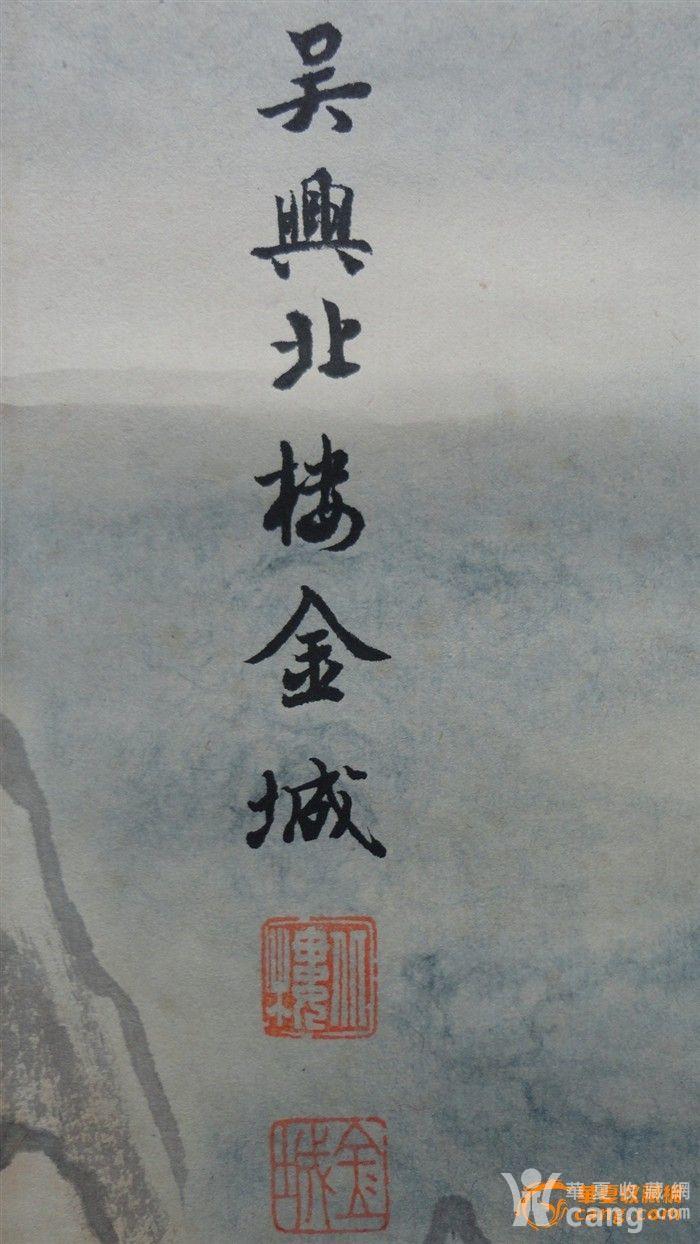 吳興北楼金城
北樓
金城
華夏收藏網
cang.com